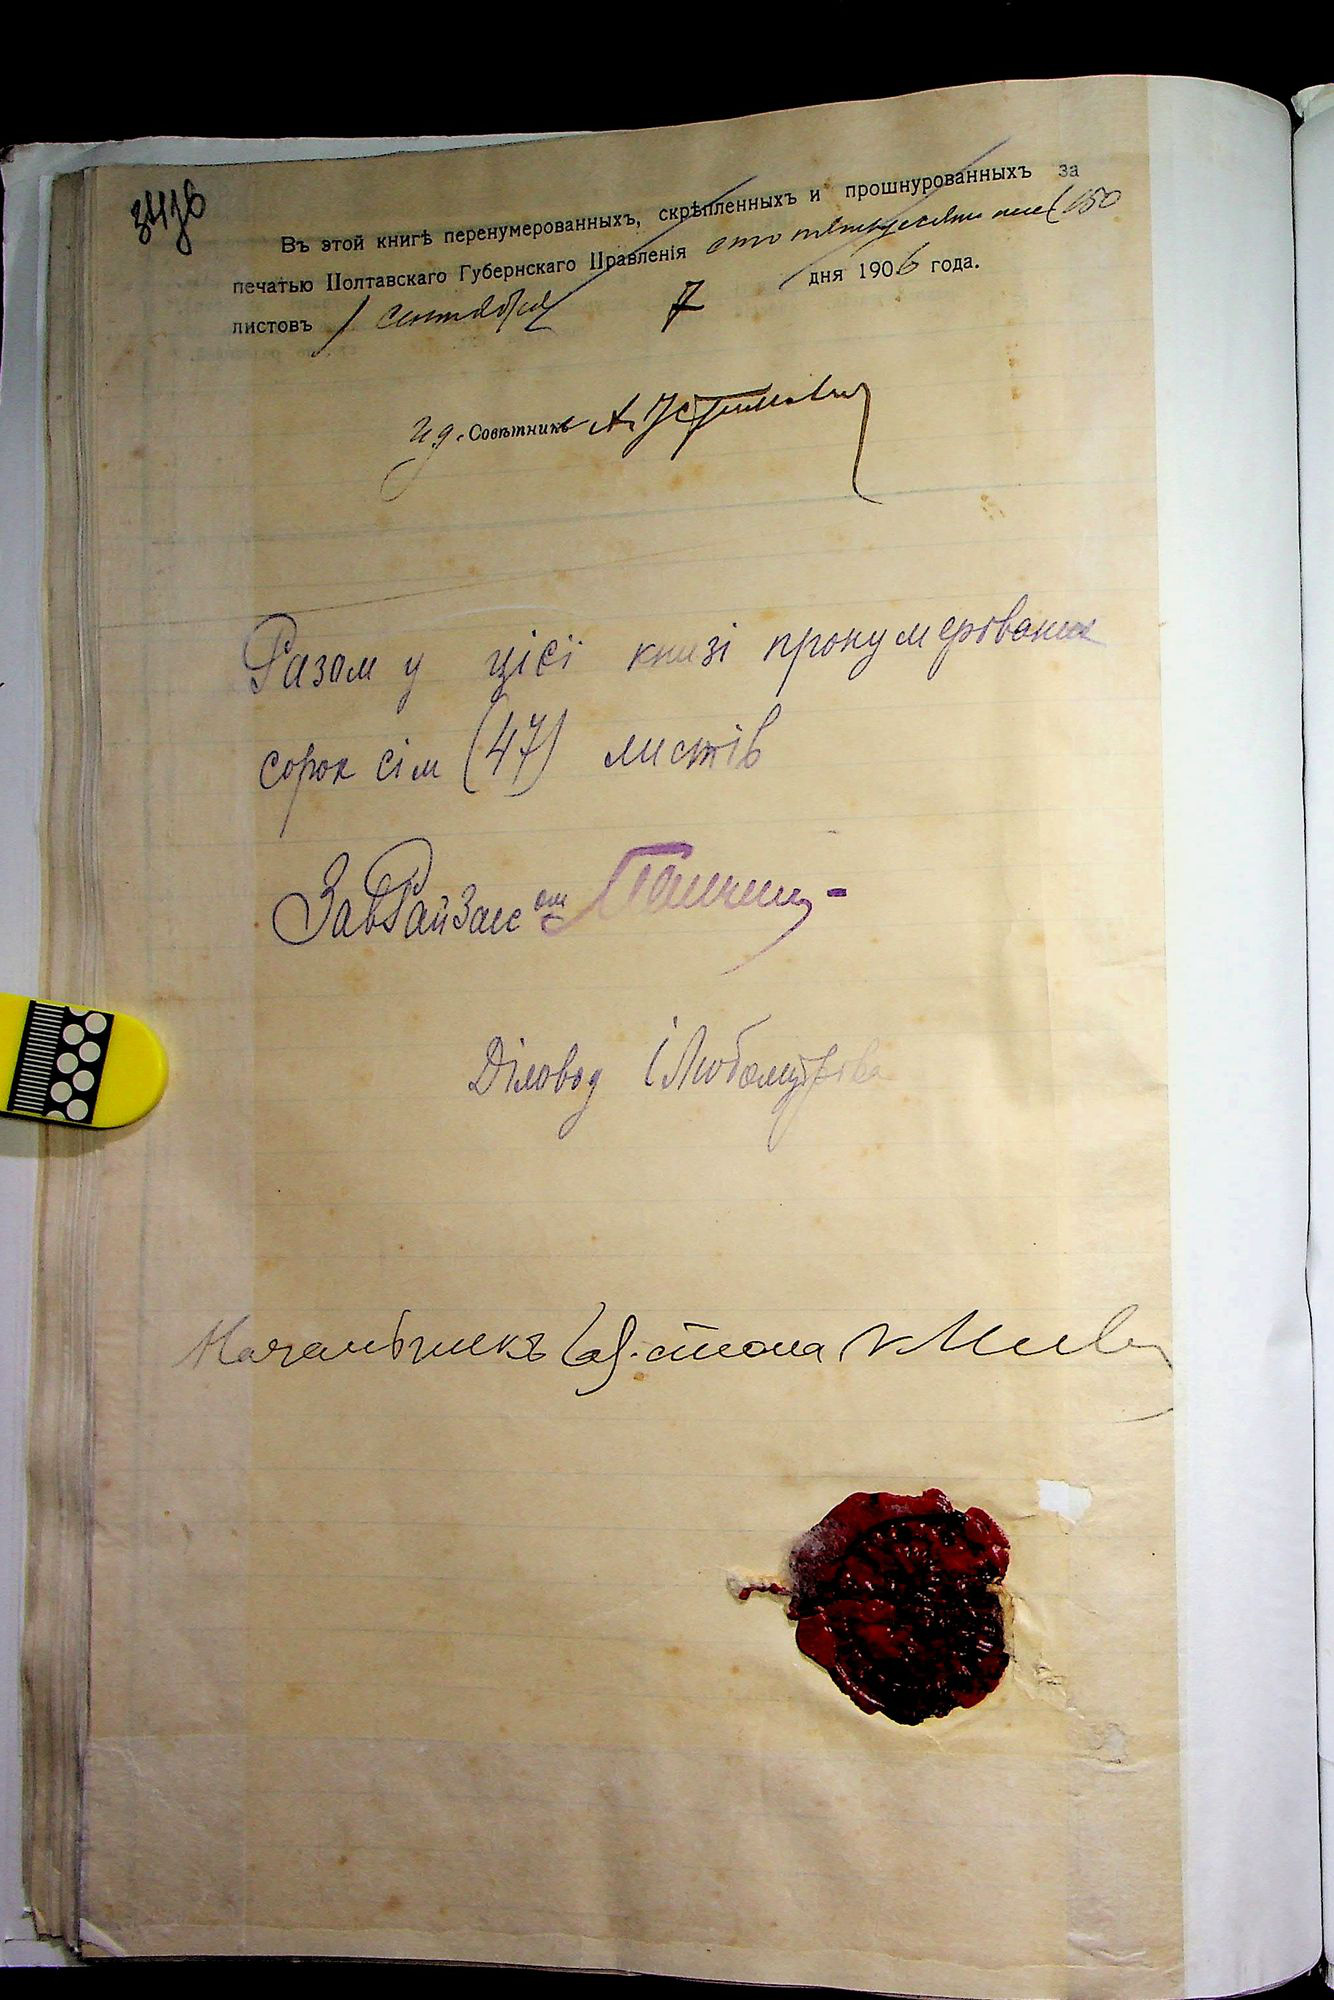 Въ этой книгѣ перенумерованныхъ, скрѣпленныхъ и прошнурованныхъ за
печатью Полтавскаго Губернскаго Правленія сто пятьдесятъ (150
листовъ / сентября 7 дня 1906 года.
И д. Совѣтникъ А. Устимович
Разом у цієї книзі пронумерованих
сорок сім (47) листів
ЗавРайЗаге
Діловод І Любомирова
Начальникъ стола